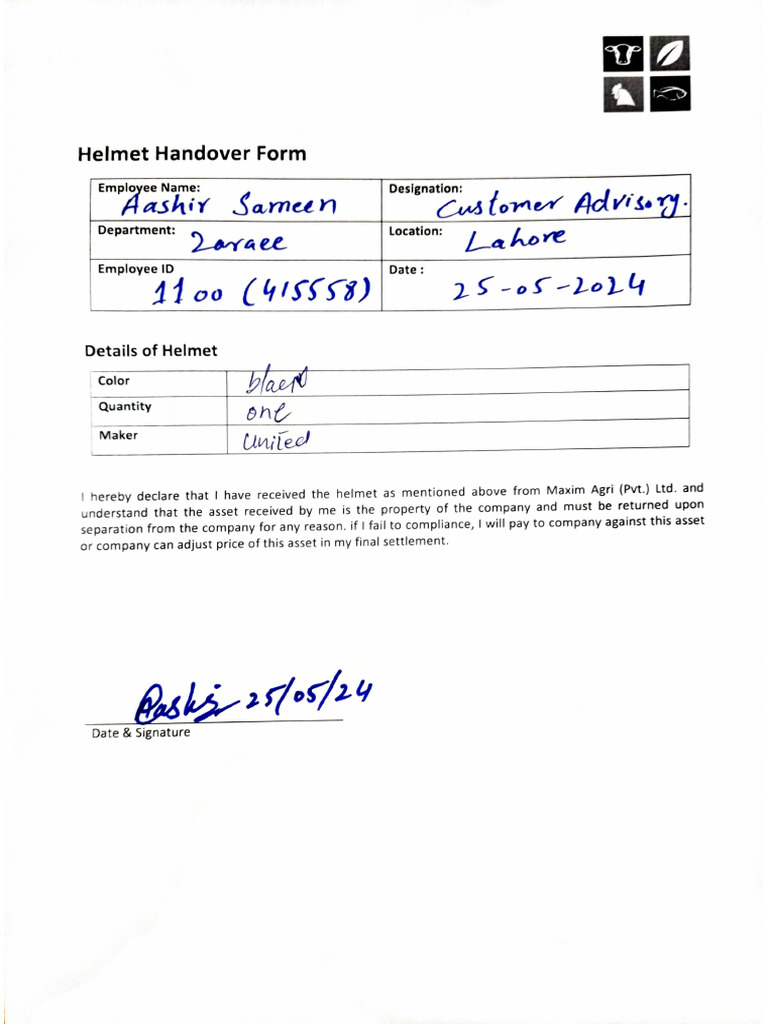 Helmet Handover Form
Employee Name: Aashir Sameen
Designation: Customer Advisory.
Department: Zaraee
Location: Lahore
Employee ID 1100 (415558)
Date : 25-05-2024
Details of Helmet
Color
Quantity one
Maker United
I hereby declare that I have received the helmet as mentioned above from Maxim Agri (Pvt.) Ltd. and
understand that the asset received by me is the property of the company and must be returned upon
separation from the company for any reason. if I fail to compliance, I will pay to company against this asset
or company can adjust price of this asset in my final settlement.
Aashir 25/05/24
Date & Signature